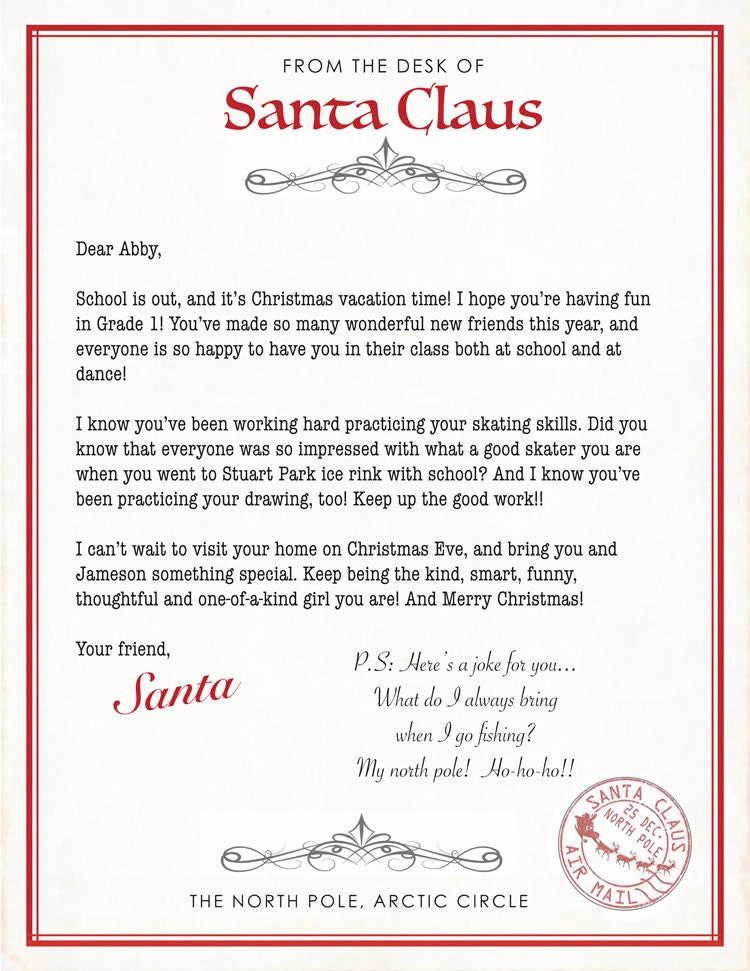 FROM THE DESK OF
Santa Claus
Dear Abby,
School is out, and it’s Christmas vacation time! I hope you’re having fun
in Grade 1! You’ve made so many wonderful new friends this year, and
everyone is so happy to have you in their class both at school and at
dance!
I know you’ve been working hard practicing your skating skills. Did you
know that everyone was so impressed with what a good skater you are
when you went to Stuart Park ice rink with school? And I know you’ve
been practicing your drawing, too! Keep up the good work!!
I can’t wait to visit your home on Christmas Eve, and bring you and
Jameson something special. Keep being the kind, smart, funny,
thoughtful and one-of-a-kind girl you are! And Merry Christmas!
Your friend,
Santa
P.S: Here’s a joke for you...
What do I always bring
when I go fishing?
My north pole! Ho-ho-ho!!
SANTA CLAUS
25 DEC.
NORTH POLE
AIR MAIL
THE NORTH POLE, ARCTIC CIRCLE